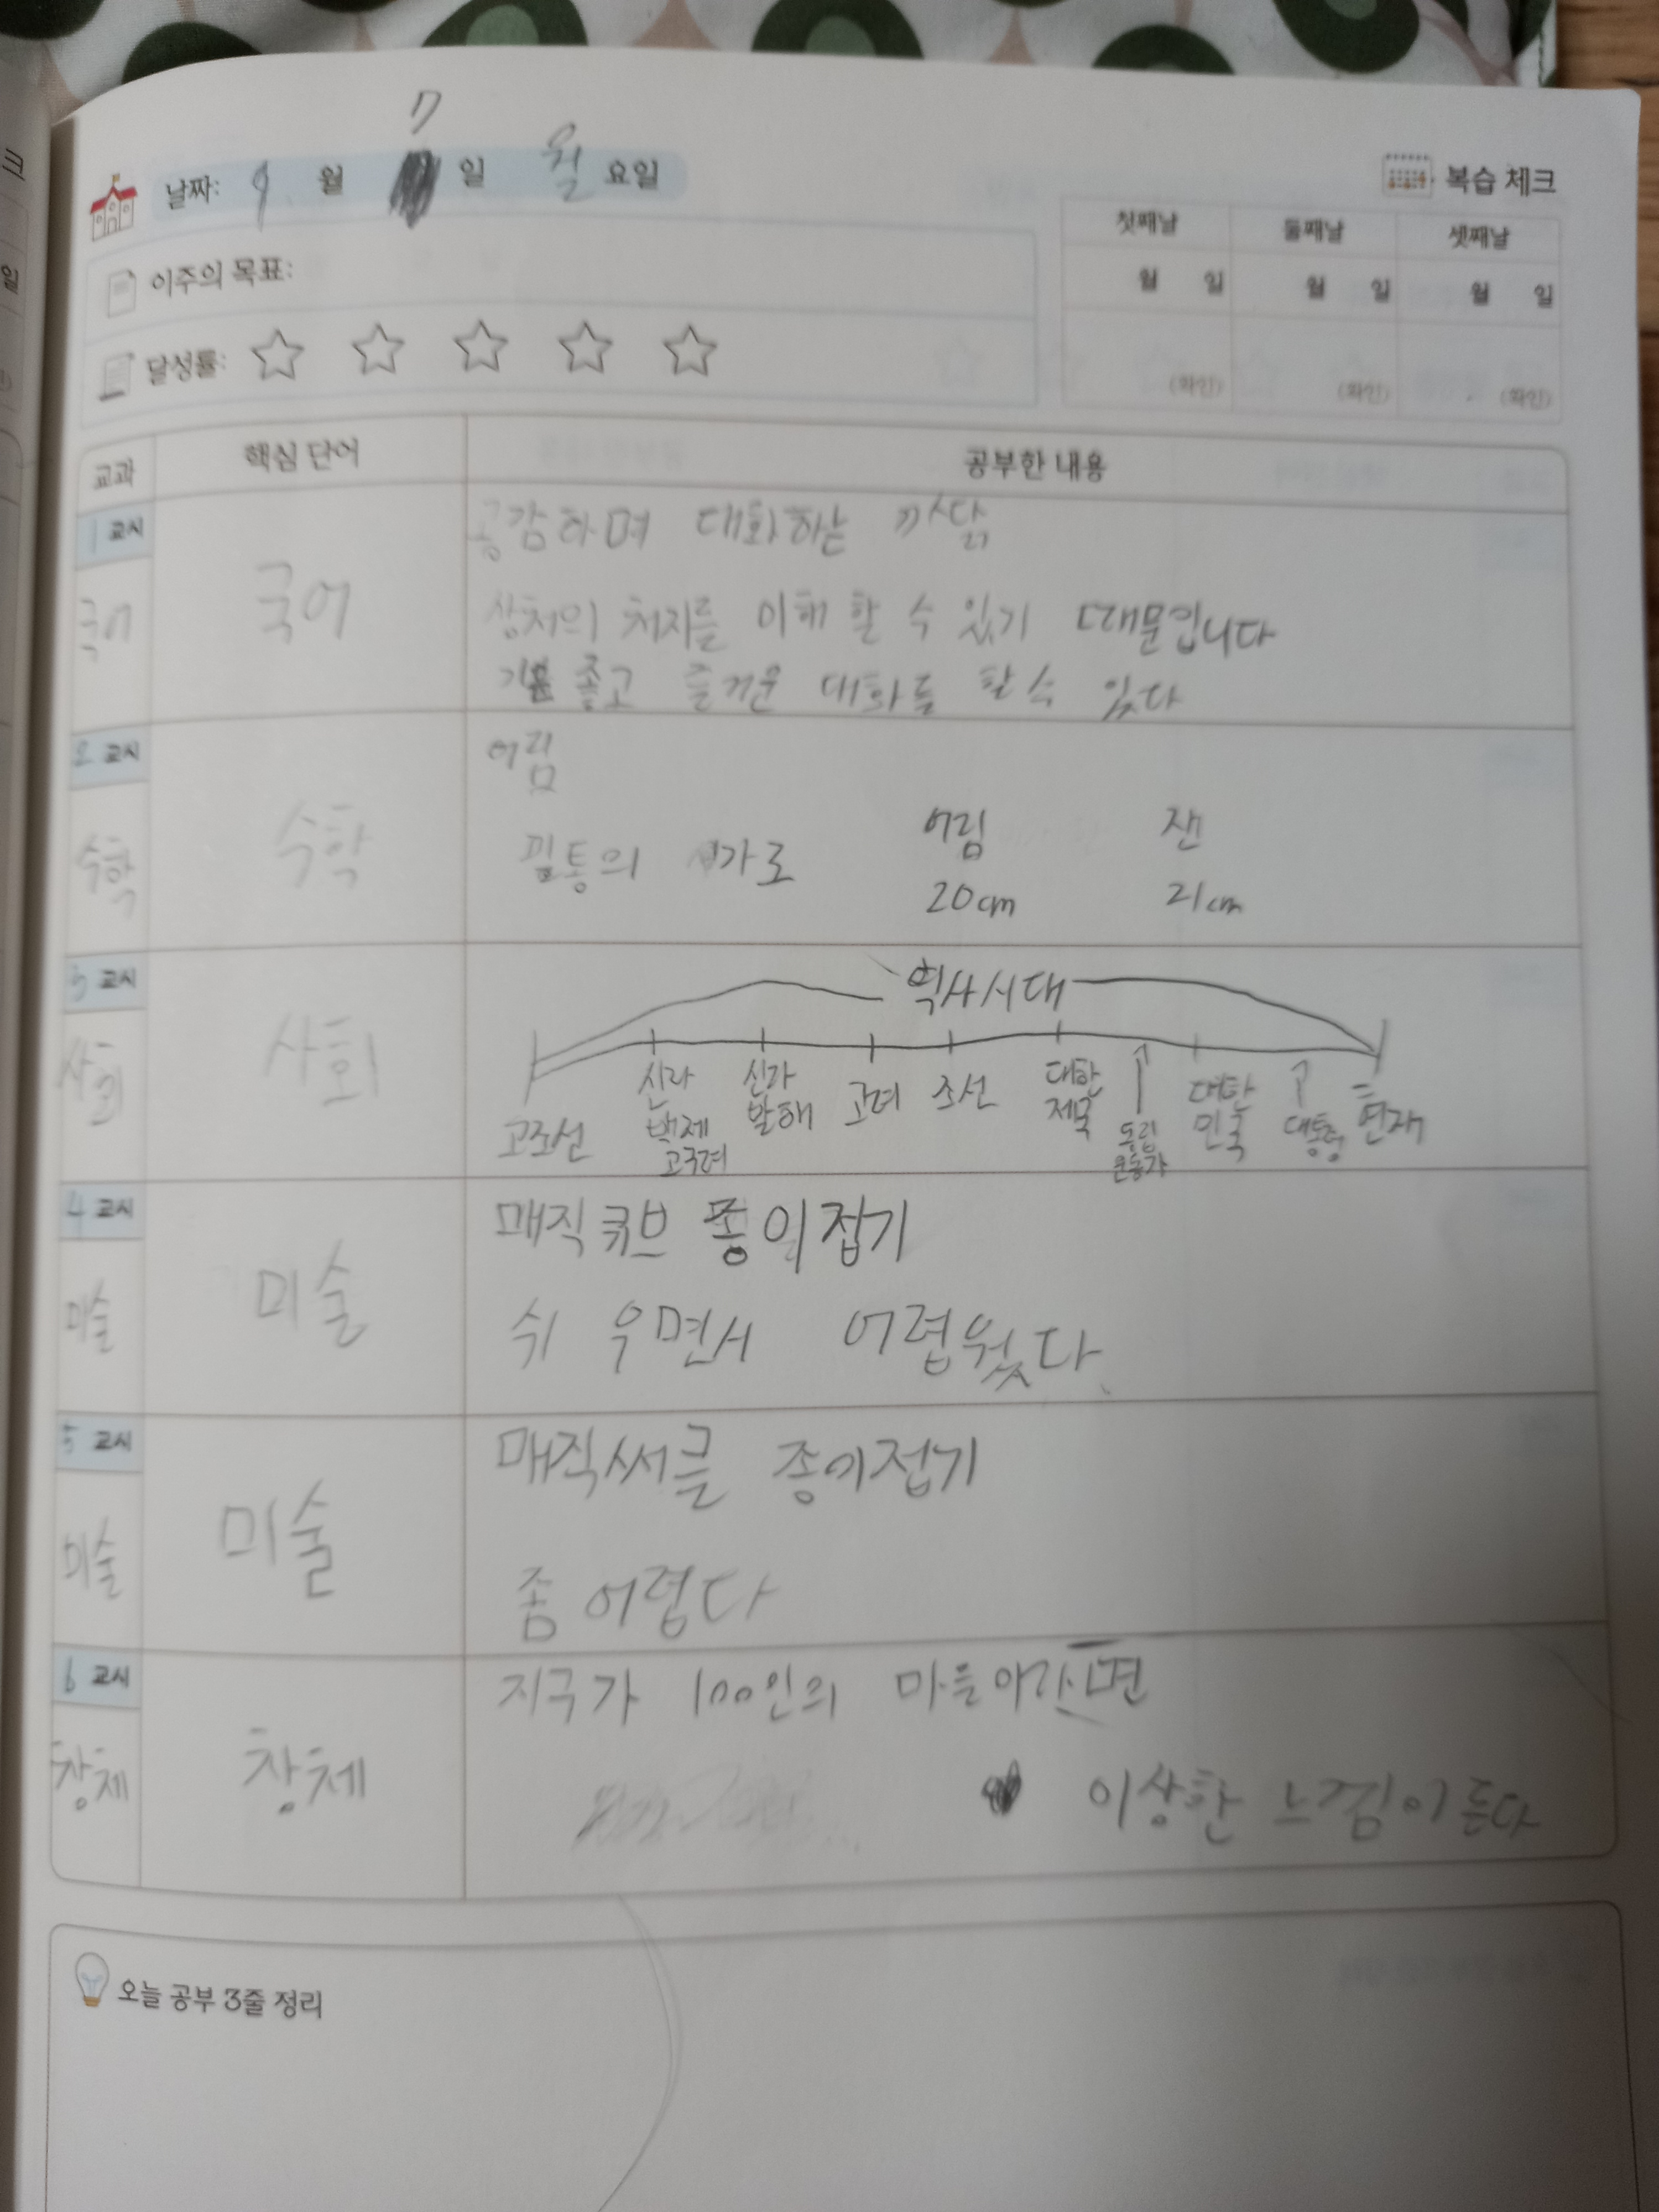 7
날짜: 9 월 일 월 요일
복습 체크
첫째날 둘째날 셋째날
월 일 월 일 월 일
(확인) (확인) (확인)
이주의 목표:
달성률:
교과 핵심 단어 공부한 내용
1 교시
국어
국어
공감하며 대화하는 까닭
상처의 처지를 이해 할 수 있기 때문입니다
기분 좋고 즐거운 대화를 할 수 있다
2 교시
수학
수학
어림
필통의 가로
어림 잰
20cm 21cm
3 교시
사회
사회
역사시대
고조선
신라 백제 고구려
신라 발해
고려
조선
대한 제국
독립 운동가
대한 민국
대통령
현재
4 교시
미술
미술
매직큐브 종이접기
쉬 우면서 어렵웠다.
5 교시
미술
미술
매직써클 종이접기
좀 어렵다
6 교시
창체
창체
지구가 100인의 마을이라면
이상한 느낌이 든다
오늘 공부 3줄 정리
크
일